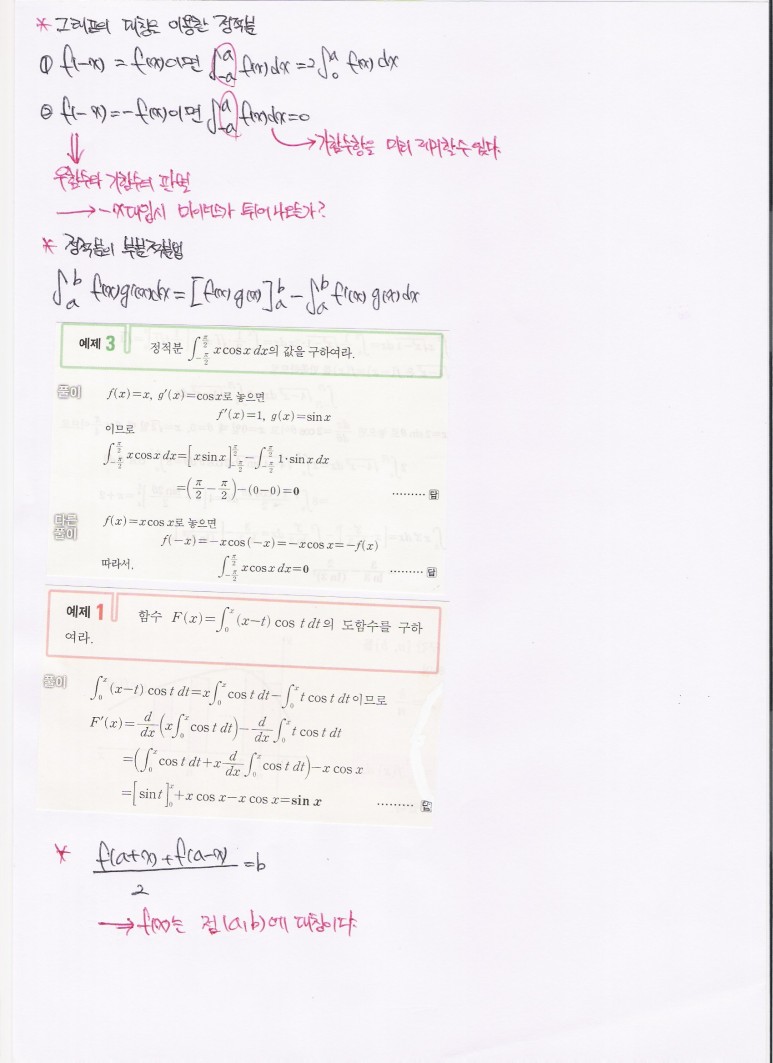 * 그래프의 대칭을 이용한 정적분
① f(-x) = f(x)이면 ∫_{-a}^{a} f(x)dx = 2∫_{0}^{a} f(x)dx
② f(-x) = -f(x)이면 ∫_{-a}^{a} f(x)dx = 0
→ 기함수항은 미리 제외할 수 있다.
⇓
우함수와 기함수의 판별
→ -x대입시 마이너스가 튀어나오는가?
* 정적분의 부분적분법
∫_{a}^{b} f(x)g'(x)dx = [f(x)g(x)]_{a}^{b} - ∫_{a}^{b} f'(x)g(x)dx
예제 3 정적분 ∫_{-π/2}^{π/2} x cos x dx의 값을 구하여라.
풀이 f(x)=x, g'(x)=cos x로 놓으면
f'(x)=1, g(x)=sin x
이므로
∫_{-π/2}^{π/2} x cos x dx = [x sin x]_{-π/2}^{π/2} - ∫_{-π/2}^{π/2} 1·sin x dx
=(π/2 - π/2)-(0-0)=0 ········· 답
다른 풀이 f(x)=x cos x로 놓으면
f(-x)=-x cos(-x)=-x cos x=-f(x)
따라서, ∫_{-π/2}^{π/2} x cos x dx=0 ········· 답
예제 1 함수 F(x)=∫_{0}^{x} (x-t) cos t dt의 도함수를 구하
여라.
풀이 ∫_{0}^{x} (x-t) cos t dt = x∫_{0}^{x} cos t dt - ∫_{0}^{x} t cos t dt이므로
F'(x) = d/dx (x∫_{0}^{x} cos t dt) - d/dx ∫_{0}^{x} t cos t dt
=(∫_{0}^{x} cos t dt + x d/dx ∫_{0}^{x} cos t dt) - x cos x
=[sin t]_{0}^{x} + x cos x - x cos x = sin x ········· 답
* (f(a+x)+f(a-x))/2 = b
→ f(x)는 점(a,b)에 대칭이다.